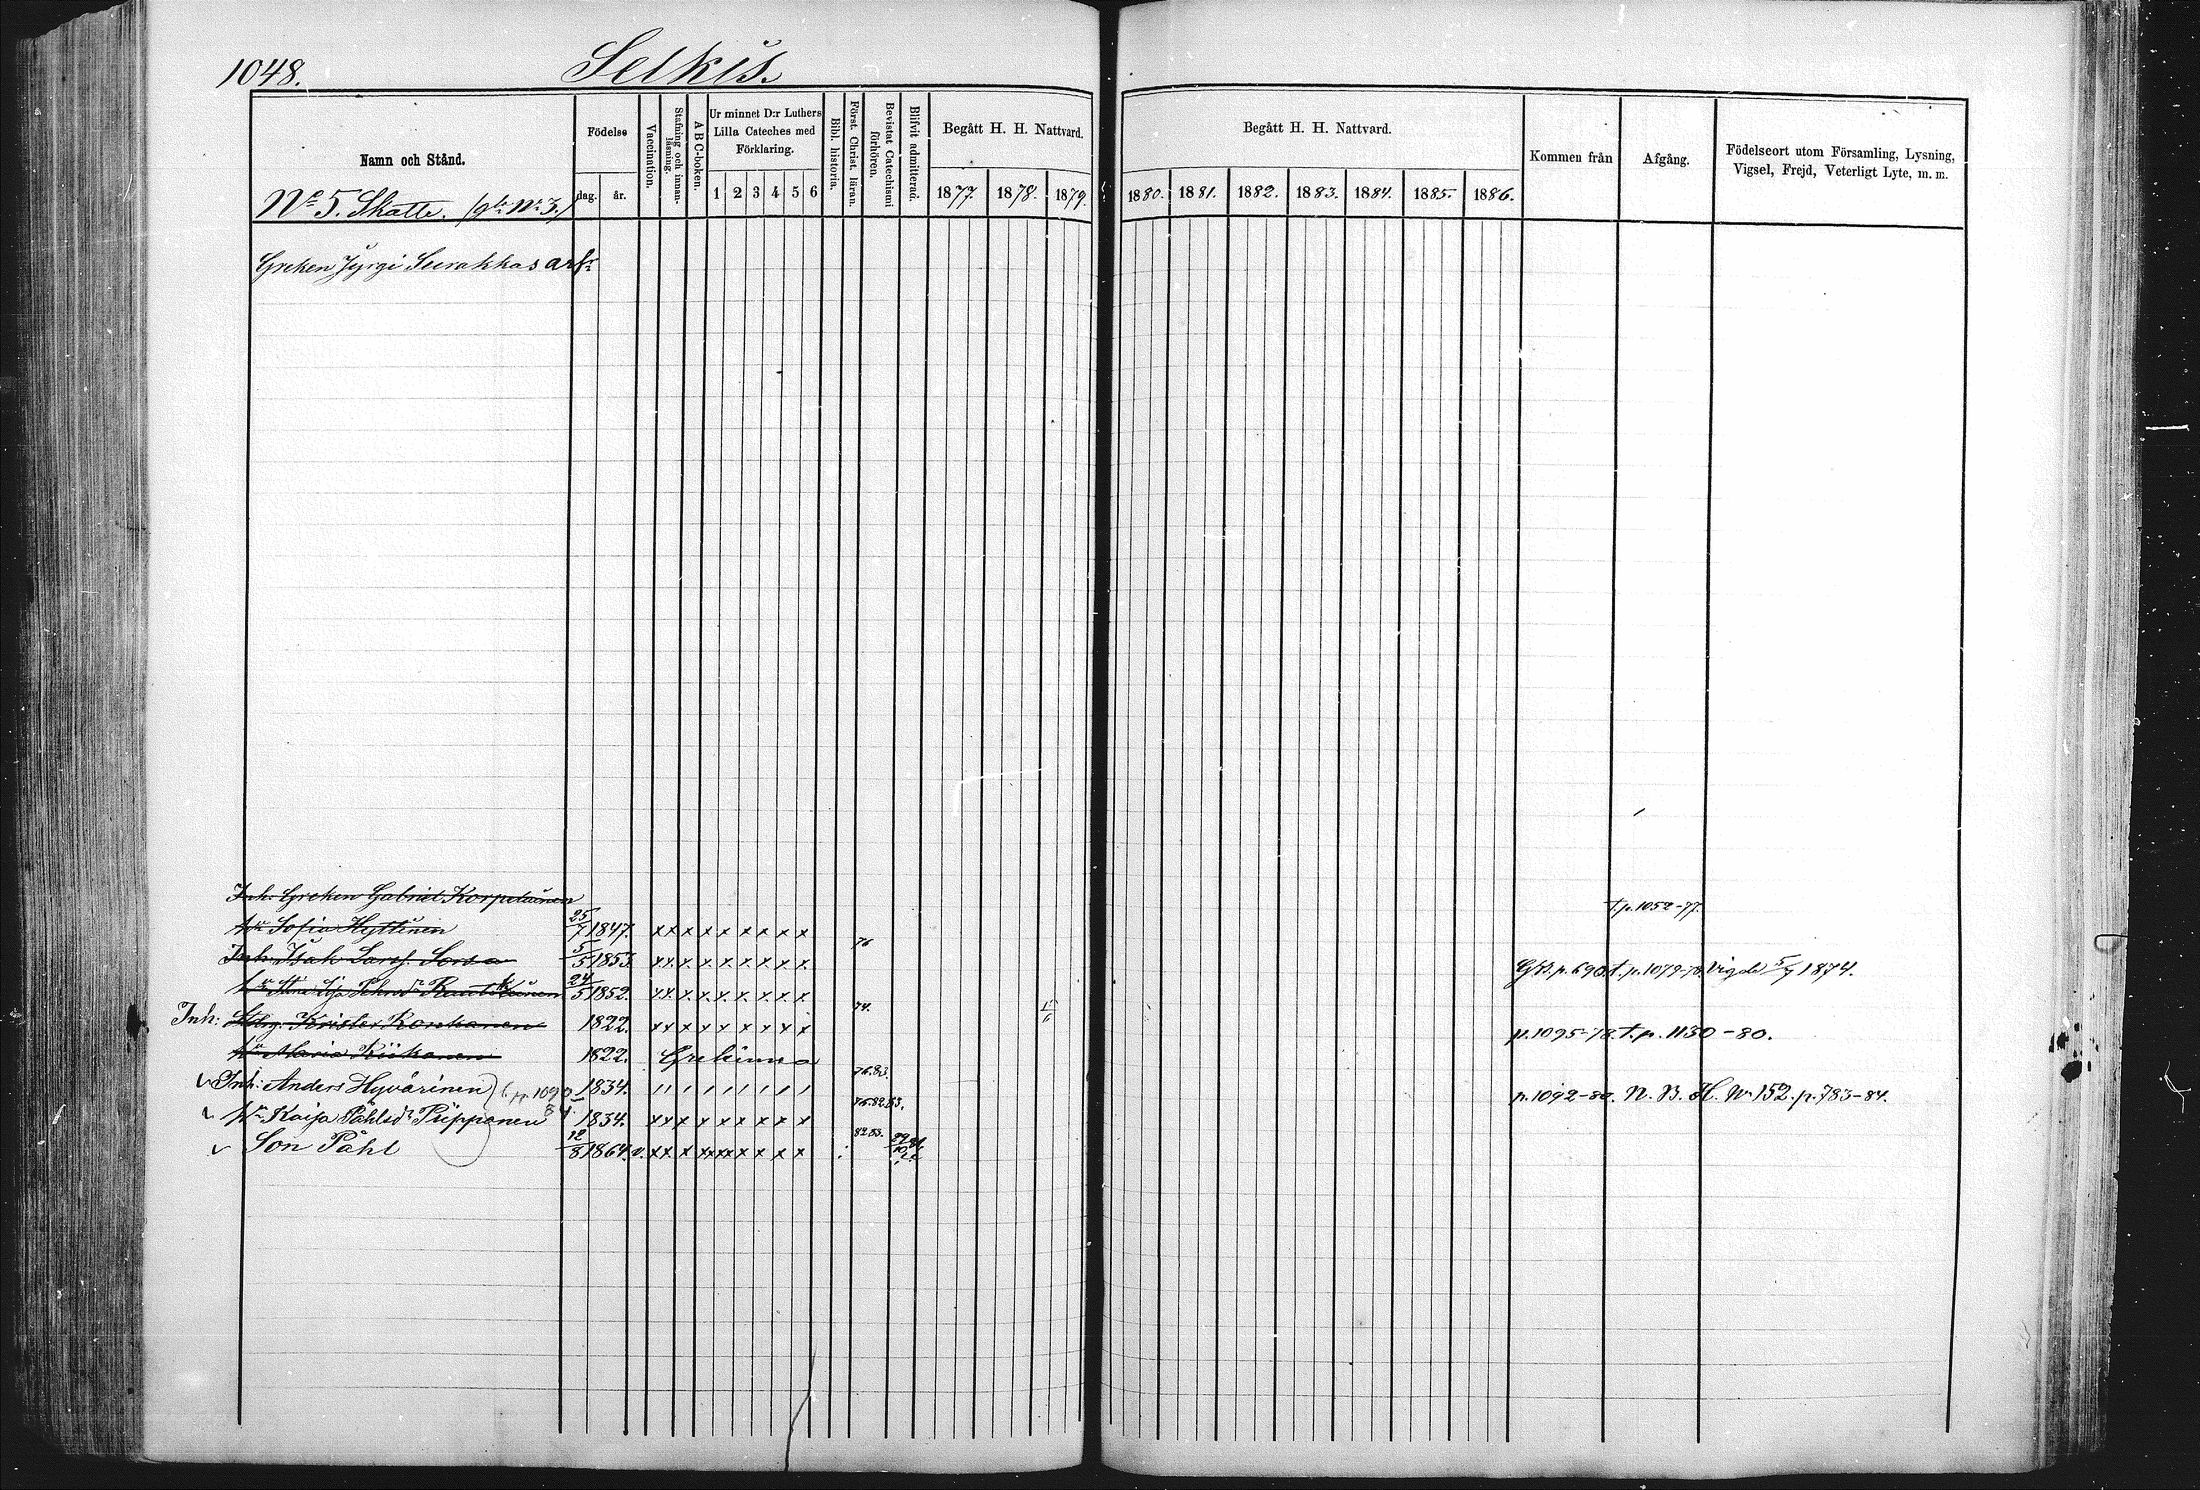 1048. Selkis.
Namn och Stånd.
Födelse
dag. år.
Vaccination.
Stafning och innanläsning.
A B C-boken.
Ur minnet D:r Luthers Lilla Cateches med Förklaring.
1 2 3 4 5 6
Bibl. historia.
Först. Christ. läran.
Bevistat Catechismi förhören.
Blifvit admitterad.
Begått H. H. Nattvard.
1877. 1878. 1879.
Begått H. H. Nattvard.
1880. 1881. 1882. 1883. 1884. 1885. 1886.
Kommen från
Afgång.
Födelseort utom Församling, Lysning, Vigsel, Frejd, Veterligt Lyte, m. m.
No 5. Skatte. (gla No 3.)
Greken Jyrgi Surakkas arfr
Inh. Greken Gabriel Korpelainen t.p. 1052-77.
hu Sofia Hyttinen 25/7 1847. x x x x x x x x x
Inh. Isak Larss. Sorsa 5/5 1853. x x x x x x x x x 76 p. 690. t. p. 1079-78. Vigde 5/7 1874.
24/5 1852. x x x x x x x x x
Inh: Krister Ronkanen 1822. x x x x x x x x x 74. p. 1095-78. t. p. 1130-80.
hu Maria Kiikanen 1822. Grekinna
Inh: Anders Hyvärinen 1834. 76.83. p. 1092-80. N. B. H. No 152. p. 783-84.
hu Kaija Påhlsdr Piipponen 1834. x x x x x x x x x 76.82.83.
Son Påhl 12/8 1864. v. x x x x x x x x x x x 82.83.